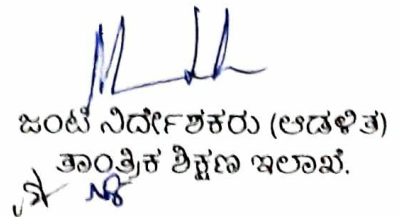 ಜಂಟಿ ನಿರ್ದೇಶಕರು (ಆಡಳಿತ)
ತಾಂತ್ರಿಕ ಶಿಕ್ಷಣ ಇಲಾಖೆ.